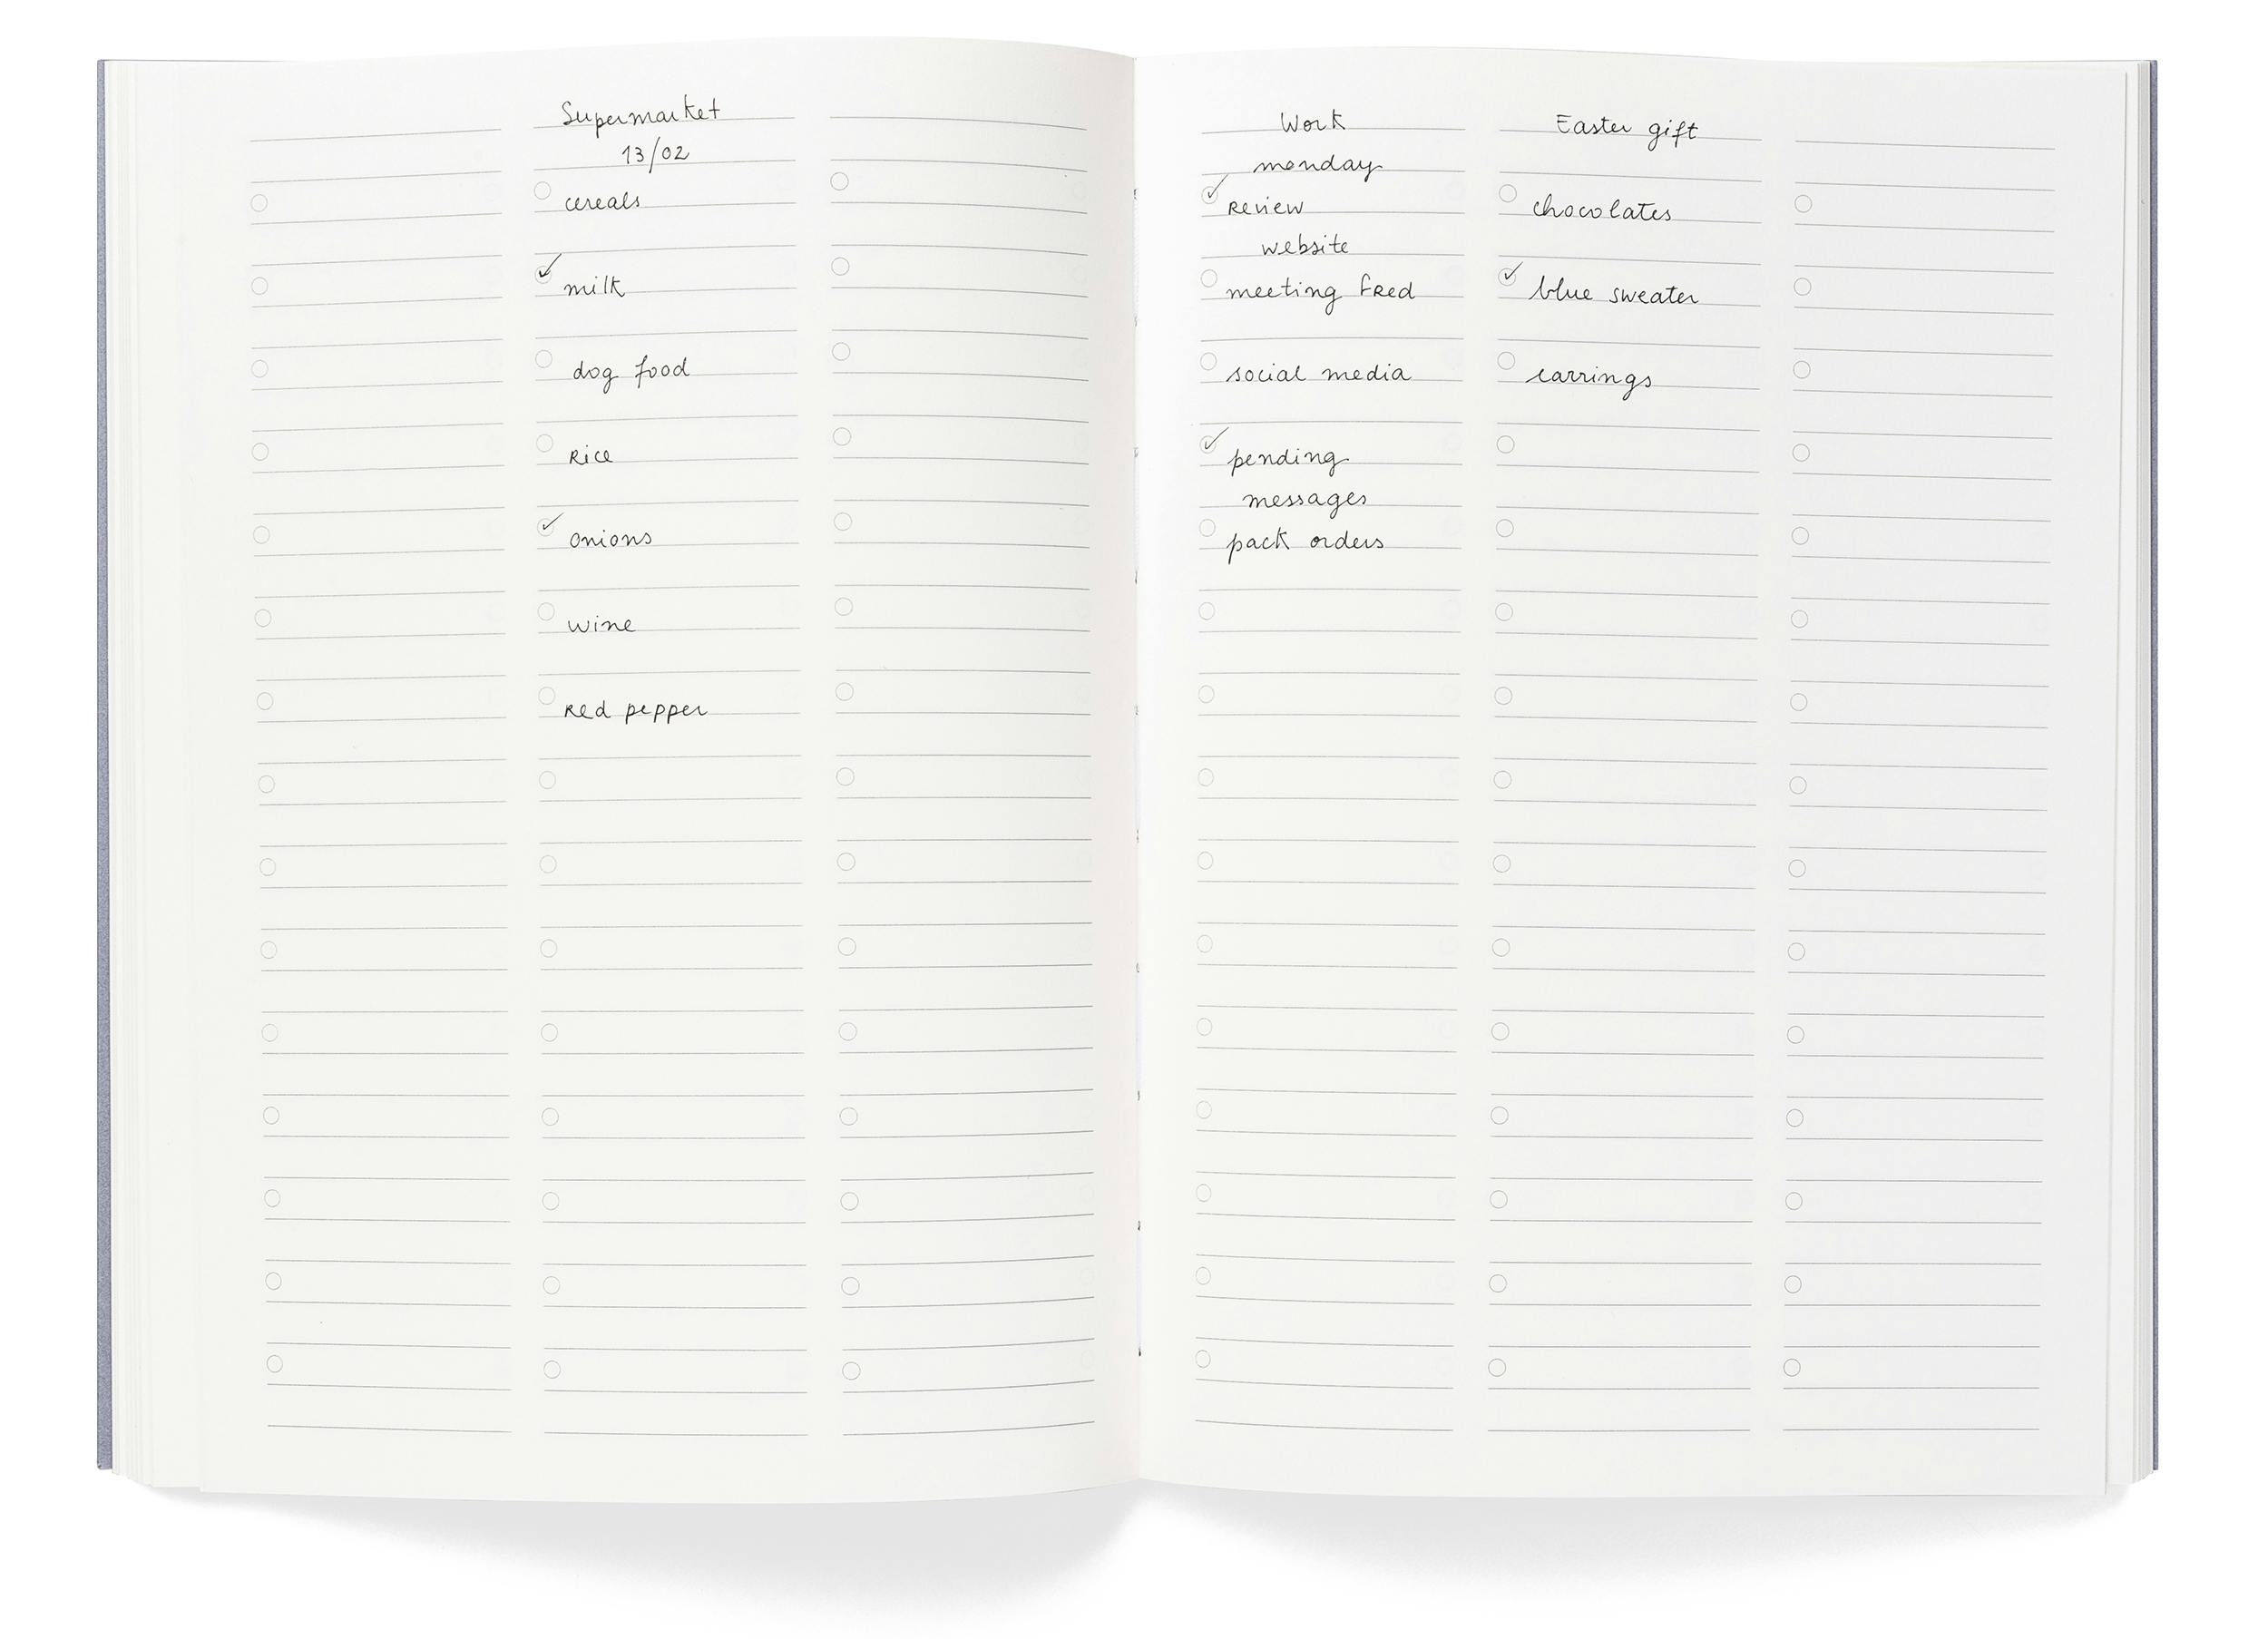 Supermarket
13/02
cereals
milk
dog food
Rice
onions
wine
Red pepper
Work
monday
Review
website
meeting Fred
social media
pending
messages
pack orders
Easter gift
chocolates
blue sweater
earrings